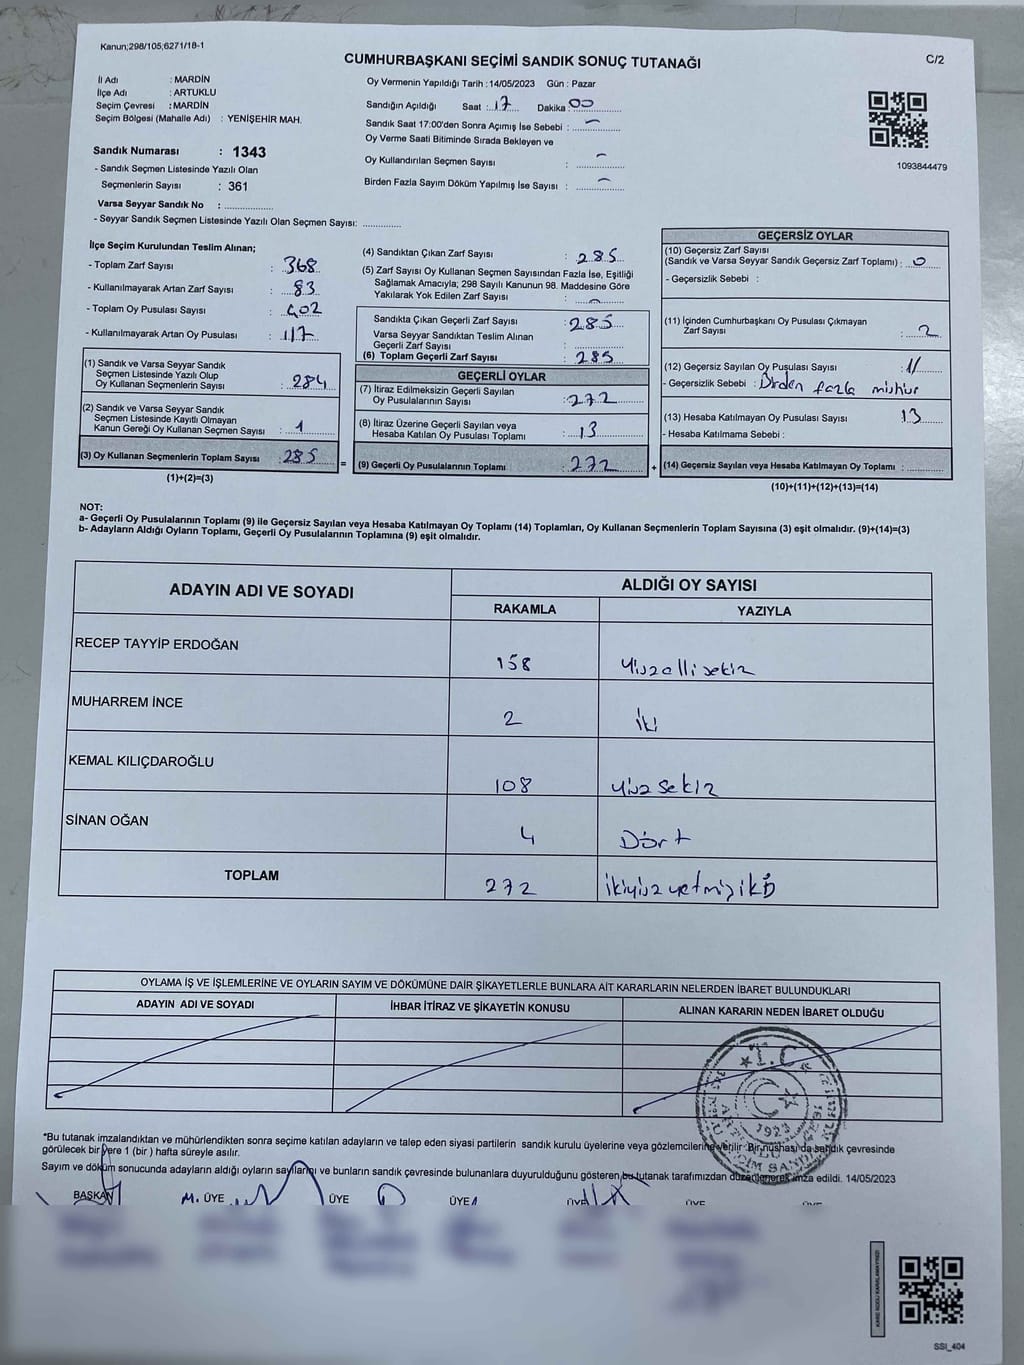 Kanun;298/105;6271/18-1
CUMHURBAŞKANI SEÇİMİ SANDIK SONUÇ TUTANAĞI
C/2
İl Adı : MARDİN
İlçe Adı : ARTUKLU
Seçim Çevresi : MARDİN
Seçim Bölgesi (Mahalle Adı) : YENİŞEHİR MAH.
Sandık Numarası : 1343
- Sandık Seçmen Listesinde Yazılı Olan
Seçmenlerin Sayısı : 361
Varsa Seyyar Sandık No : ..............
- Seyyar Sandık Seçmen Listesinde Yazılı Olan Seçmen Sayısı: ............
Oy Vermenin Yapıldığı Tarih : 14/05/2023 Gün : Pazar
Sandığın Açıldığı Saat : 17 Dakika : 00
Sandık Saat 17:00'den Sonra Açımış İse Sebebi : –
Oy Verme Saati Bitiminde Sırada Bekleyen ve
Oy Kullandırılan Seçmen Sayısı : –
Birden Fazla Sayım Döküm Yapılmış İse Sayısı : –
1093844479
İlçe Seçim Kurulundan Teslim Alınan;
- Toplam Zarf Sayısı : 368
- Kullanılmayarak Artan Zarf Sayısı : 83
- Toplam Oy Pusulası Sayısı : 402
- Kullanılmayarak Artan Oy Pusulası : 117
(1) Sandık ve Varsa Seyyar Sandık
Seçmen Listesinde Yazılı Olup
Oy Kullanan Seçmenlerin Sayısı : 284
(2) Sandık ve Varsa Seyyar Sandık
Seçmen Listesinde Kayıtlı Olmayan
Kanun Gereği Oy Kullanan Seçmen Sayısı : 1
(3) Oy Kullanan Seçmenlerin Toplam Sayısı : 285
(1)+(2)=(3)
(4) Sandıktan Çıkan Zarf Sayısı : 285
(5) Zarf Sayısı Oy Kullanan Seçmen Sayısından Fazla İse, Eşitliği
Sağlamak Amacıyla; 298 Sayılı Kanunun 98. Maddesine Göre
Yakılarak Yok Edilen Zarf Sayısı : –
Sandıkta Çıkan Geçerli Zarf Sayısı : 285
Varsa Seyyar Sandıktan Teslim Alınan
Geçerli Zarf Sayısı : ..............
(6) Toplam Geçerli Zarf Sayısı : 285
GEÇERLİ OYLAR
(7) İtiraz Edilmeksizin Geçerli Sayılan
Oy Pusulalarının Sayısı : 272
(8) İtiraz Üzerine Geçerli Sayılan veya
Hesaba Katılan Oy Pusulası Toplamı : 13
= (9) Geçerli Oy Pusulalarının Toplamı : 272 +
GEÇERSİZ OYLAR
(10) Geçersiz Zarf Sayısı
(Sandık ve Varsa Seyyar Sandık Geçersiz Zarf Toplamı) : 0
- Geçersizlik Sebebi :
(11) İçinden Cumhurbaşkanı Oy Pusulası Çıkmayan
Zarf Sayısı : 2
(12) Geçersiz Sayılan Oy Pusulası Sayısı : 11
- Geçersizlik Sebebi : Birden fazla mühür
(13) Hesaba Katılmayan Oy Pusulası Sayısı 13
- Hesaba Katılmama Sebebi :
(14) Geçersiz Sayılan veya Hesaba Katılmayan Oy Toplamı : ............
(10)+(11)+(12)+(13)=(14)
NOT:
a- Geçerli Oy Pusulalarının Toplamı (9) ile Geçersiz Sayılan veya Hesaba Katılmayan Oy Toplamı (14) Toplamları, Oy Kullanan Seçmenlerin Toplam Sayısına (3) eşit olmalıdır. (9)+(14)=(3)
b- Adayların Aldığı Oyların Toplamı, Geçerli Oy Pusulalarının Toplamına (9) eşit olmalıdır.
ADAYIN ADI VE SOYADI
ALDIĞI OY SAYISI
RAKAMLA YAZIYLA
RECEP TAYYİP ERDOĞAN 158 Yüzellisekiz
MUHARREM İNCE 2 İki
KEMAL KILIÇDAROĞLU 108 Yüzsekiz
SİNAN OĞAN 4 Dört
TOPLAM 272 İkiyüzyetmişiki
OYLAMA İŞ VE İŞLEMLERİNE VE OYLARIN SAYIM VE DÖKÜMÜNE DAİR ŞİKAYETLERLE BUNLARA AİT KARARLARIN NELERDEN İBARET BULUNDUKLARI
ADAYIN ADI VE SOYADI İHBAR İTİRAZ VE ŞİKAYETİN KONUSU ALINAN KARARIN NEDEN İBARET OLDUĞU
T.C
1923
*Bu tutanak imzalandıktan ve mühürlendikten sonra seçime katılan adayların ve talep eden siyasi partilerin sandık kurulu üyelerine veya gözlemcilerine verilir. Bir nüshası da sandık çevresinde
görülecek bir yere 1 (bir ) hafta süreyle asılır.
Sayım ve döküm sonucunda adayların aldığı oyların sayılarını ve bunların sandık çevresinde bulunanlara duyurulduğunu gösteren bu tutanak tarafımızdan düzenlenerek imza edildi. 14/05/2023
BAŞKAN M. ÜYE ÜYE ÜYE ÜYE ÜYE ÜYE
SSİ_404